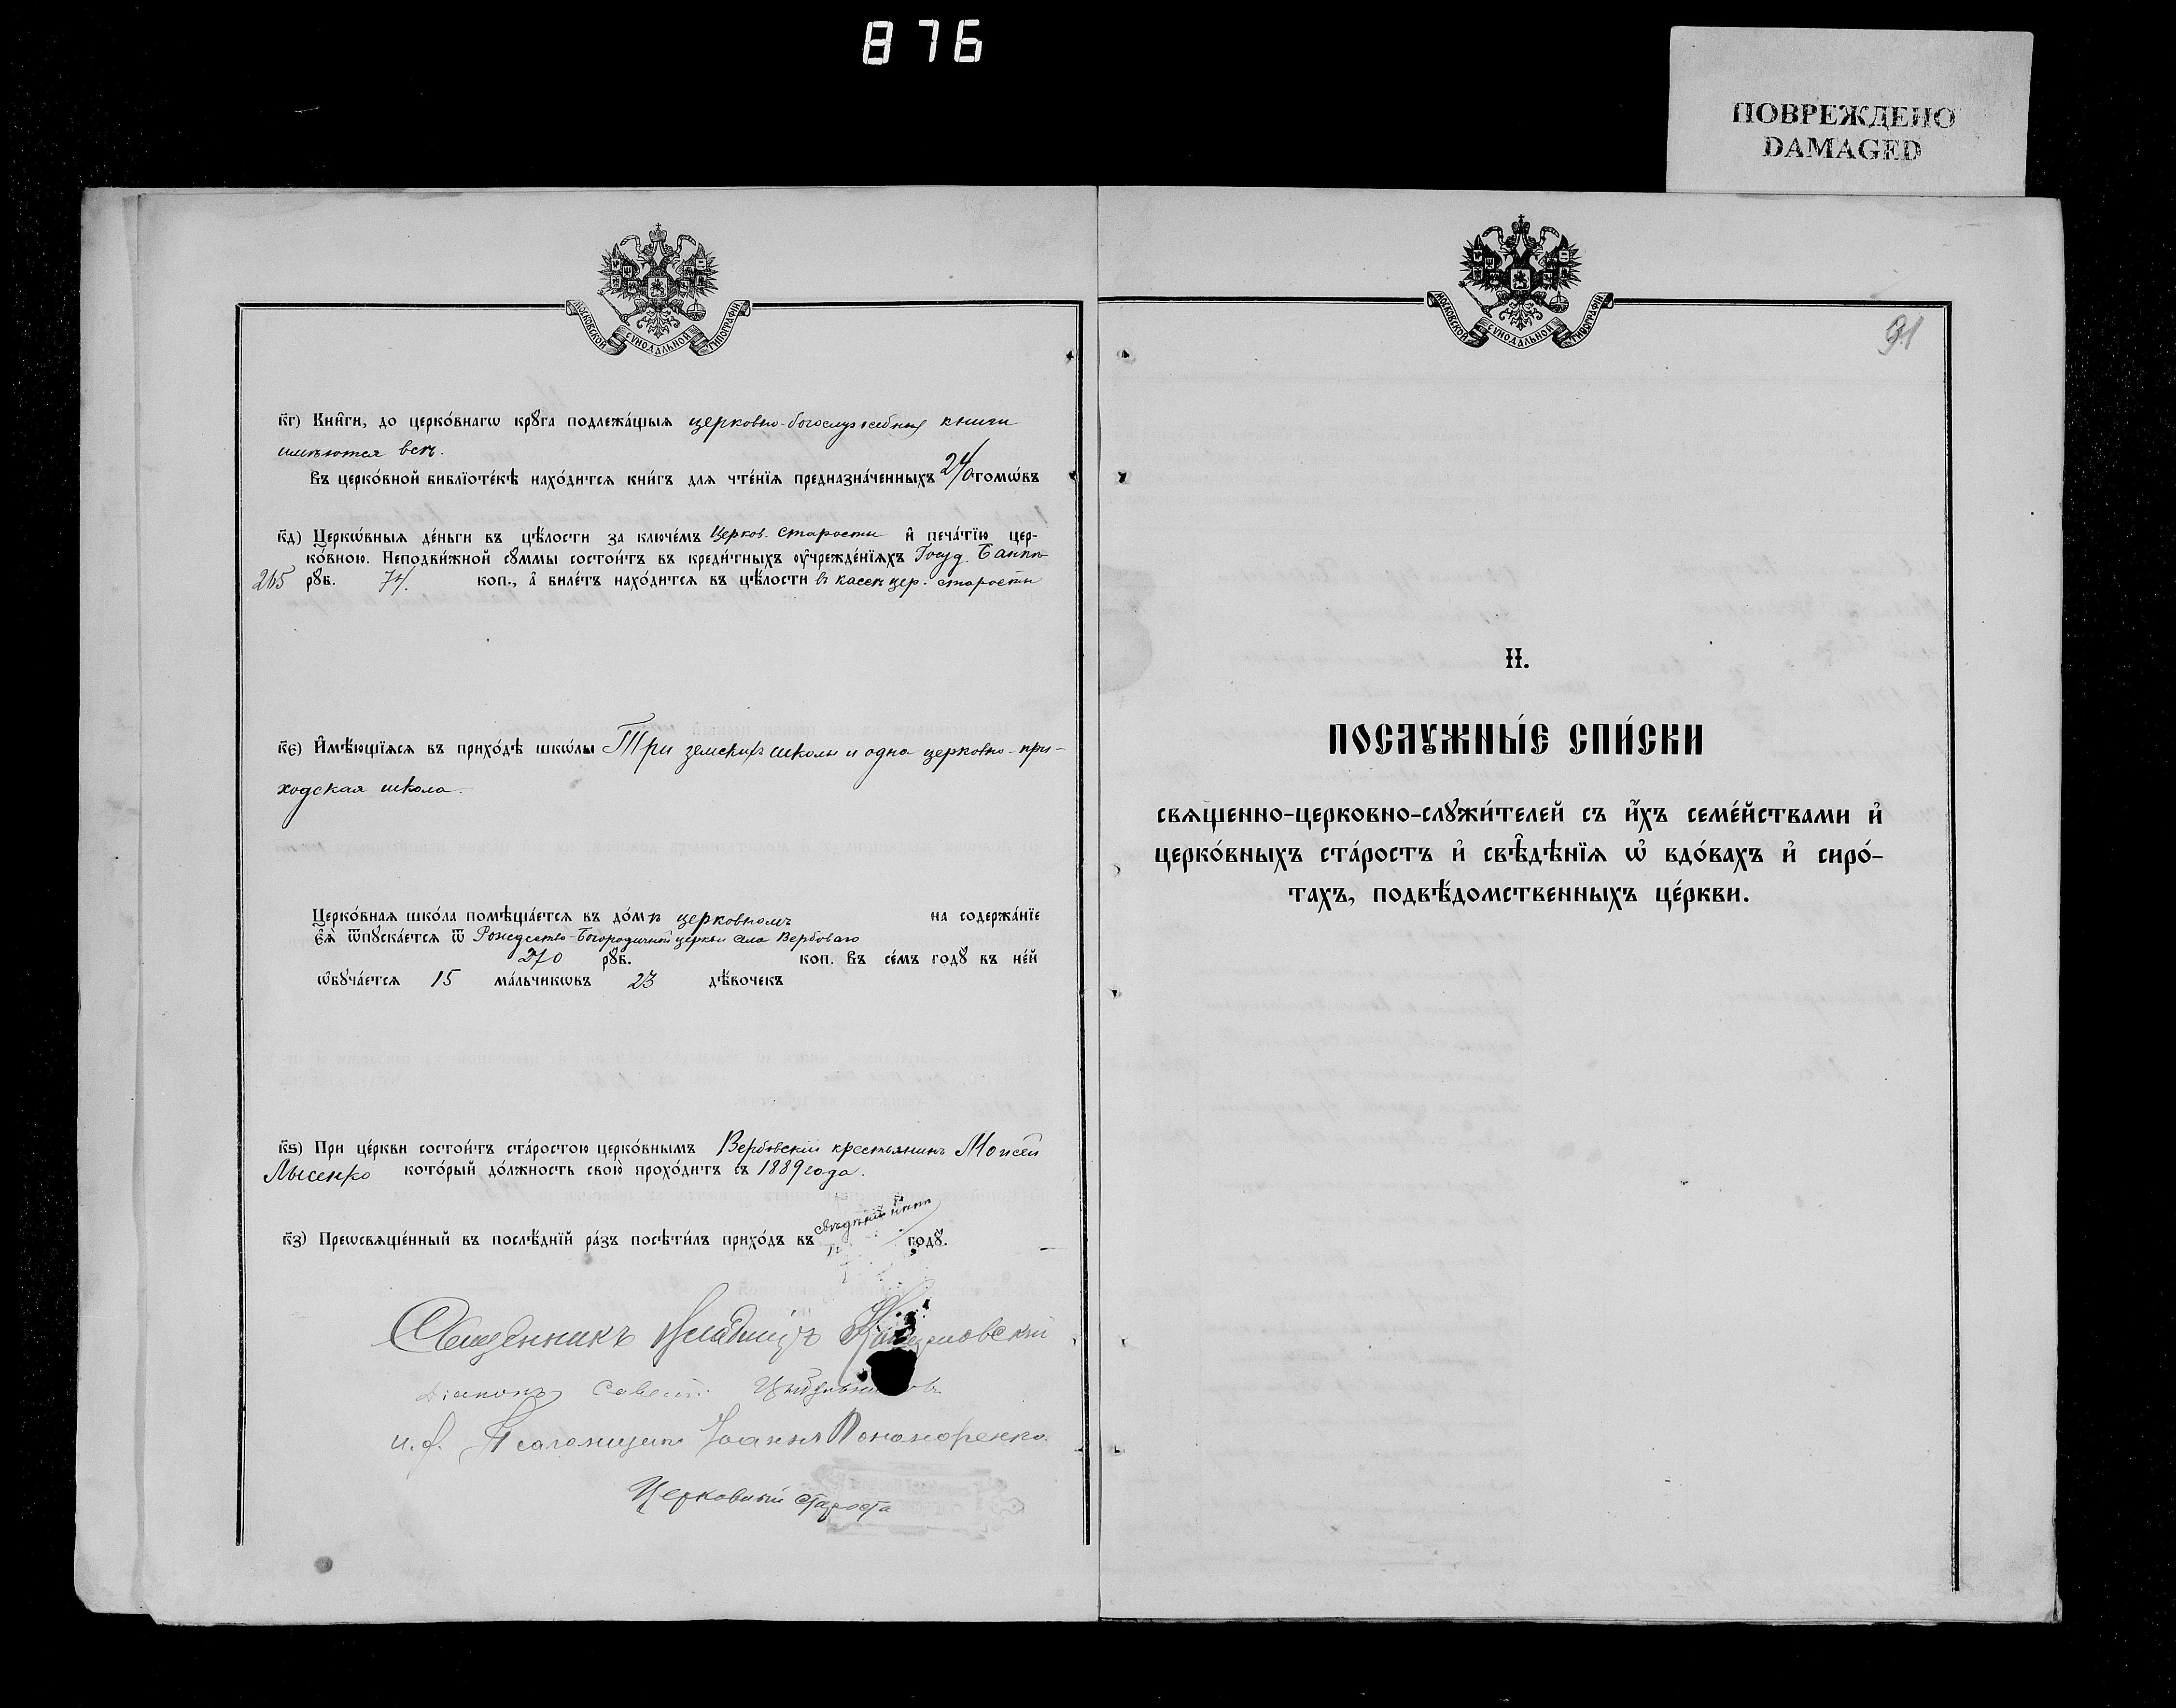 876
ПОВРЕЖДЕНО
DAMAGED
МОСКОВСКОЙ СѴНОДАЛЬНОЙ ТИПОГРАФІИ
к҃г) Кни̑ги, до церко́внагѡ крꙋ́га подлежа́щыя церковно-богослужебныя книги
имѣются всѣ.
Въ церко́вной библїоте́кѣ нахо́дится кни́гъ для чте́нїя предназна́ченныхъ 240 томѡ́въ
к҃д) Церкѡ́вныя де́ньги въ цѣ́лости за ключе́мъ Церков. старосты и҆ печа́тїю цер-
ко́вною. Неподви́жной сꙋ́ммы состои́тъ въ креди́тныхъ ᲂу҆чрежде́нїяхъ Госуд. Банкѣ
265 рꙋб. 74 коп., а҆ биле́тъ нахо́дится въ цѣ́лости въ кассѣ цер. старосты
к҃є) И҆мѣ́ющїяся въ прихо́дѣ шкѡ́лы Три земскихъ школы и одна церковно-при-
ходская школа.
Церко́вная шко́ла помѣща́ется въ до́мѣ церковномъ на содержа́нїе
є҆я̀ ѿпꙋска́ется ѿ Рождество-Богородичной церкви села Вербоваго
270 рꙋб. коп. Въ се́мъ годꙋ̀ въ не́й
ѡ҆бꙋча́ется 15 ма́льчикѡвъ 23 дѣ́вочекъ
к҃ѕ) При це́ркви состои́тъ ста́ростою церко́внымъ Вербовский крестьянинъ Моисей
Лысенко кото́рый до́лжность свою̀ прохо́дитъ съ 1889 года.
к҃з) Преѡсвяще́нный въ послѣ́днїй ра́зъ посѣти́лъ прихо́дъ въ свѣдѣній нѣтъ годꙋ̀.
Священникъ Владиміръ
Діаконъ Савват.
и. д. Псаломщика Іоаннъ Пономаренко.
Церковный староста
МОСКОВСКОЙ СѴНОДАЛЬНОЙ ТИПОГРАФІИ
91
II.
ПОСЛꙊЖНЫ́Є СПИ́СКИ
свѧщенно-церковно-слꙋжи́телей съ и҆́хъ семе́йствами и҆
церко́вныхъ ста́ростъ и҆ свѣ́дѣнїя ѡ҆ вдо́вахъ и҆ сиро́-
тахъ, подвѣ́домственныхъ це́ркви.